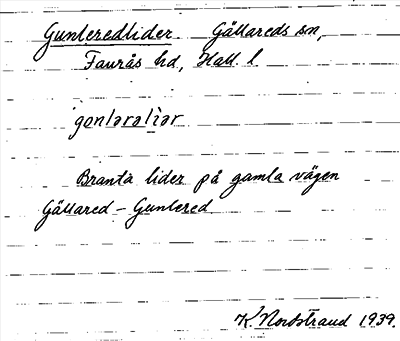 Gunleredlider Gällareds sn,
Faurås hd, Hall. l.
gɵnlərəlìər
Branta lider på gamla vägen
Gällared – Gunlered.
K. Nordstrand 1939.